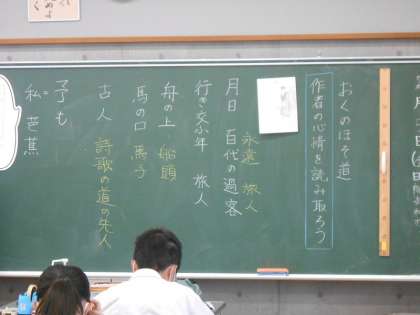 おくのほそ道
作者の心情を読み取ろう
永遠 旅人
月日 百代の過客
行き交ふ年 旅人
舟の上 船頭
馬の口 馬子
古人 詩歌の道の先人
予も
私=芭蕉